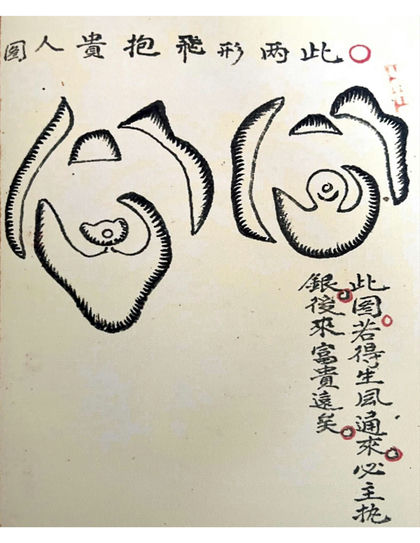 此两形飛抱貴人圖
此圖若得生風通來必主执
銀後來富貴遠矣